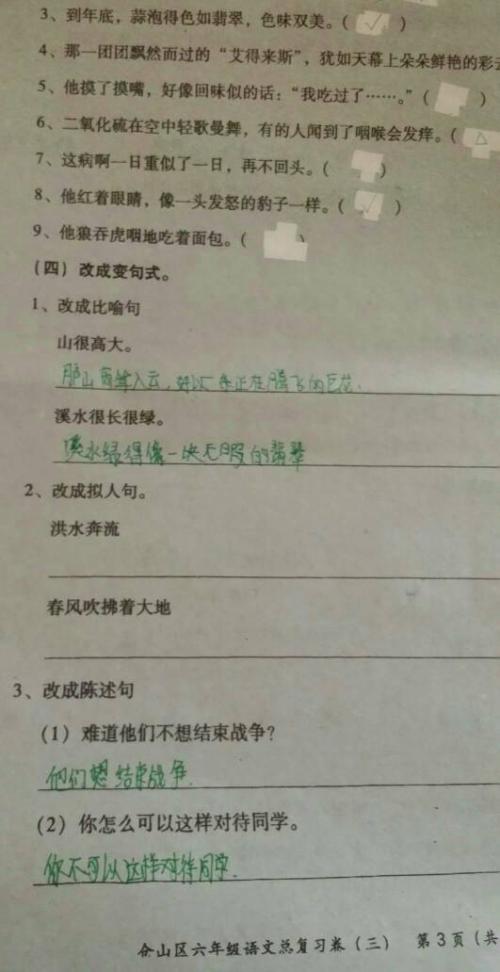 3、到年底，蒜泡得色如翡翠，色味双美。( ✓ )
4、那一团团飘然而过的“艾得来斯”，犹如天幕上朵朵鲜艳的彩云
5、他摸了摸嘴，好像回味似的话：“我吃过了……。”( )
6、二氧化硫在空中轻歌曼舞，有的人闻到了咽喉会发痒。( △
7、这病啊一日重似了一日，再不回头。( )
8、他红着眼睛，像一头发怒的豹子一样。( ✓ )
9、他狼吞虎咽地吃着面包。( )
(四) 改成变句式。
1、改成比喻句
山很高大。
那山高耸入云，好似一条正在腾飞的巨龙.
溪水很长很绿。
溪水绿得像一块无瑕的翡翠
2、改成拟人句。
洪水奔流
春风吹拂着大地
3、改成陈述句
(1) 难道他们不想结束战争？
他们想结束战争.
(2) 你怎么可以这样对待同学。
你不可以这样对待同学.
仓山区六年级语文总复习卷 (三) 第3页 (共